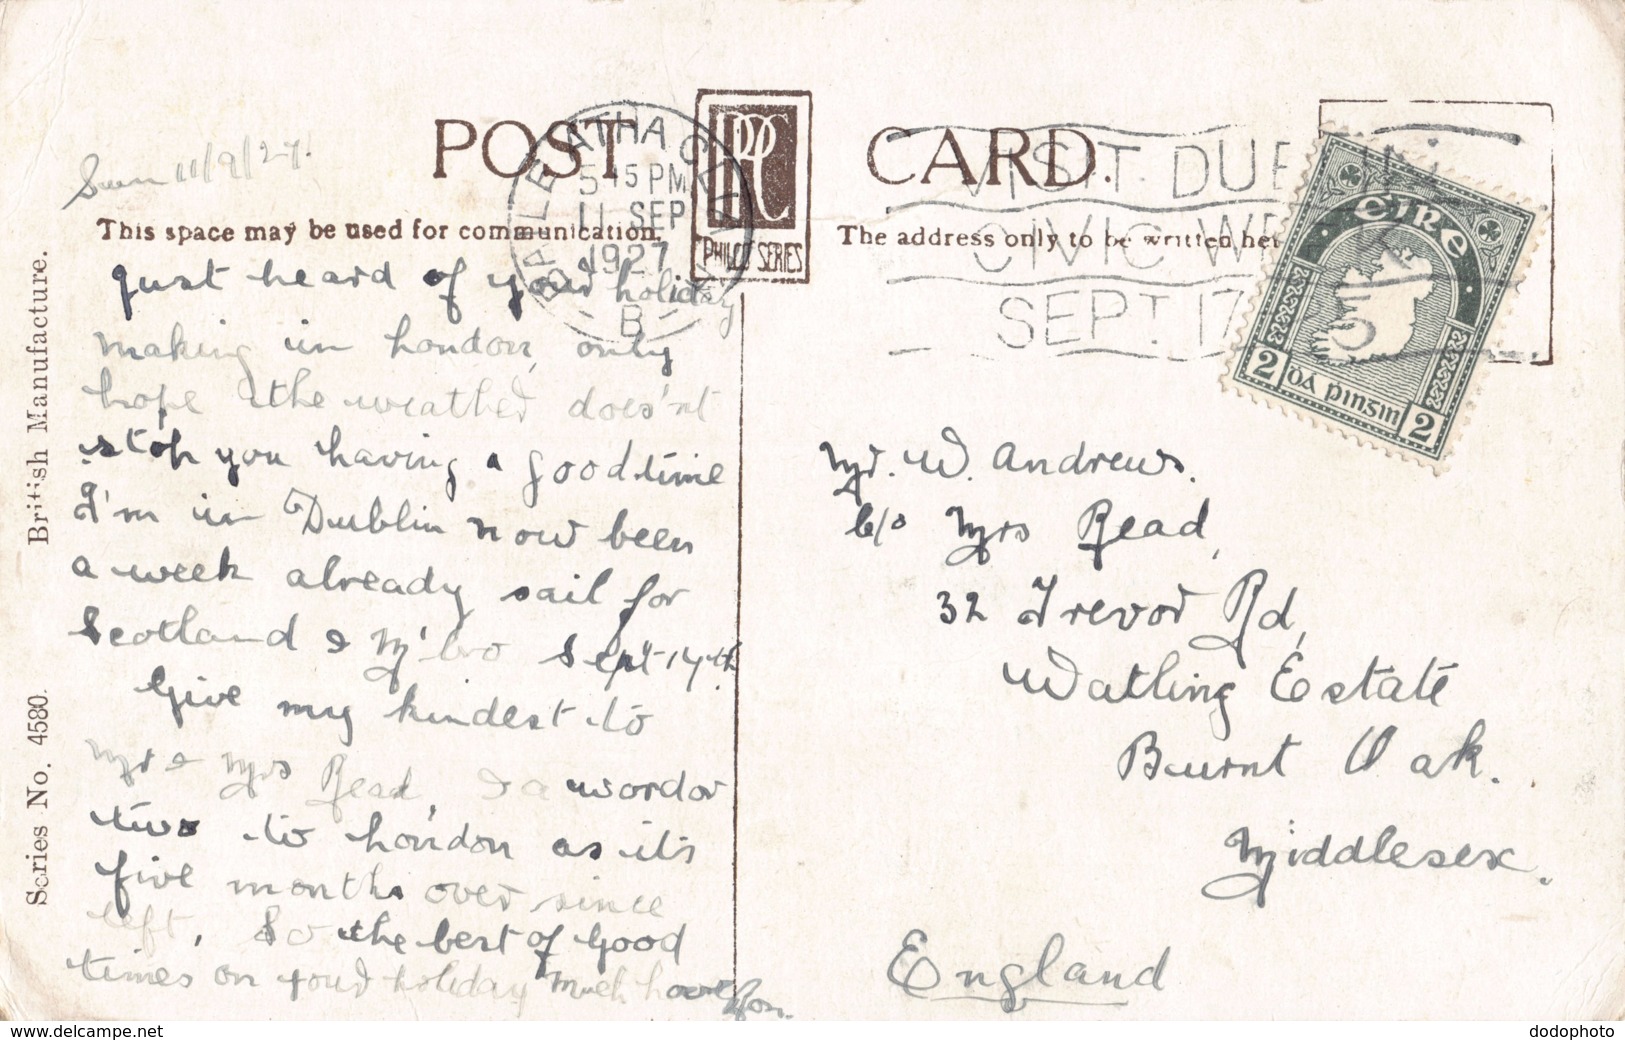 POST CARD.
BAILE ÁTHA CLIATH
5 15 PM
11 SEP
1927
B
PPC
PHILCO SERIES
VISIT DUBLIN
CIVIC WEEK
SEPT. 17
ÉIRE
2 DÁ PINSIN 2
Sun 11/9/27.
This space may be used for communication.
The address only to be written here
British Manufacture.
Series No. 4580.
Just heard of your holiday
making in London, only
hope the weather does'nt
stop you having a good time
I'm in Dublin now been
a week already sail for
Scotland & Sept 17th.
Give my kindest to
Mr & Mrs Read, & a word or
two to London as its
five months over since
left, So the best of Good
times on your holiday Much love
Mr. W. Andrews.
c/o Mrs Read,
32 Trevor Rd,
Watling Estate
Burnt Oak.
Middlesex.
England
dodophoto
www.delcampe.net